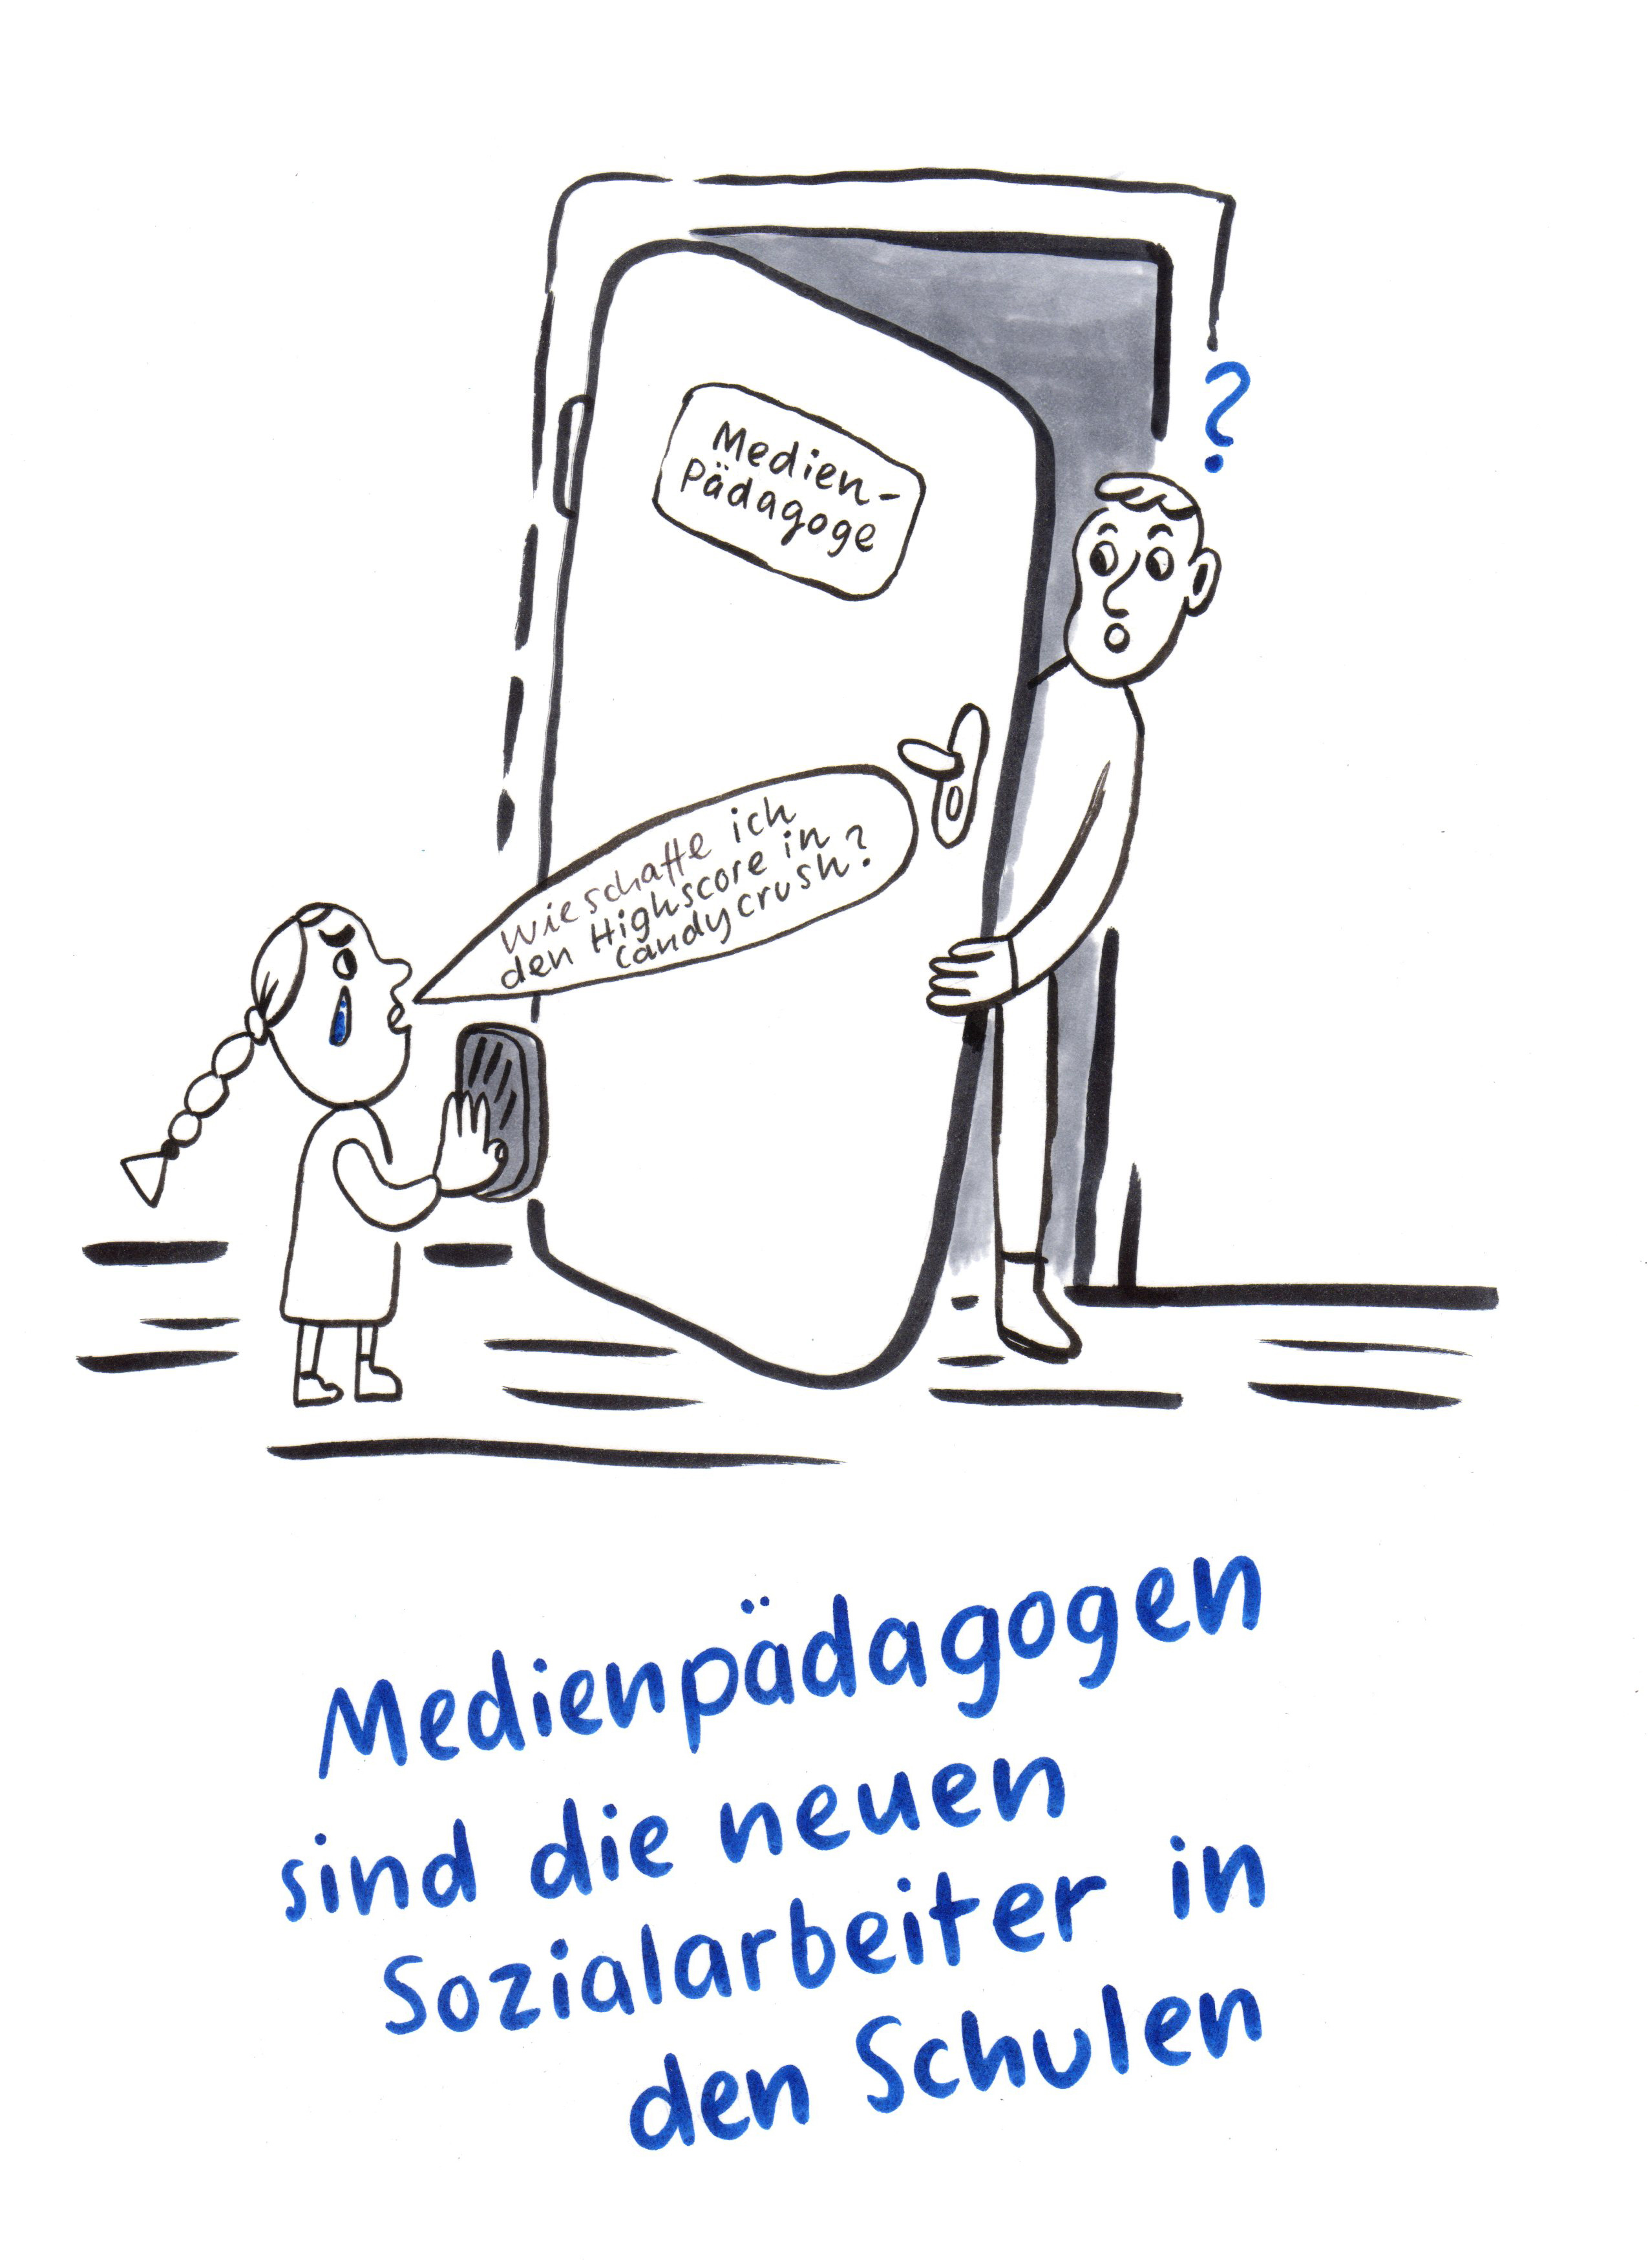 ?
Medien-
Pädagoge
Wie schaffe ich
den Highscore in
candycrush?
Medienpädagogen
sind die neuen
Sozialarbeiter in
den Schulen